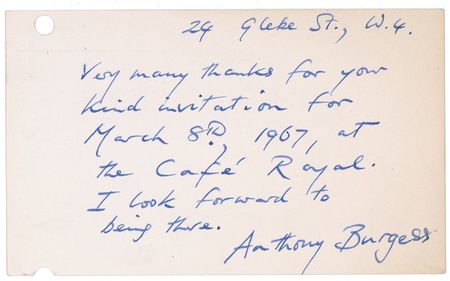 24 Glebe St., W.4.
Very many thanks for your
kind invitation for
March 8th, 1967, at
the Café Royal.
I look forward to
being there.
Anthony Burgess